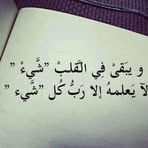 و يبقىْ فِي الْقَلبْ ”شَّيءْ ”
لآ يَعلمهُ إلا رَبُّ كُل ”شَّيء ”